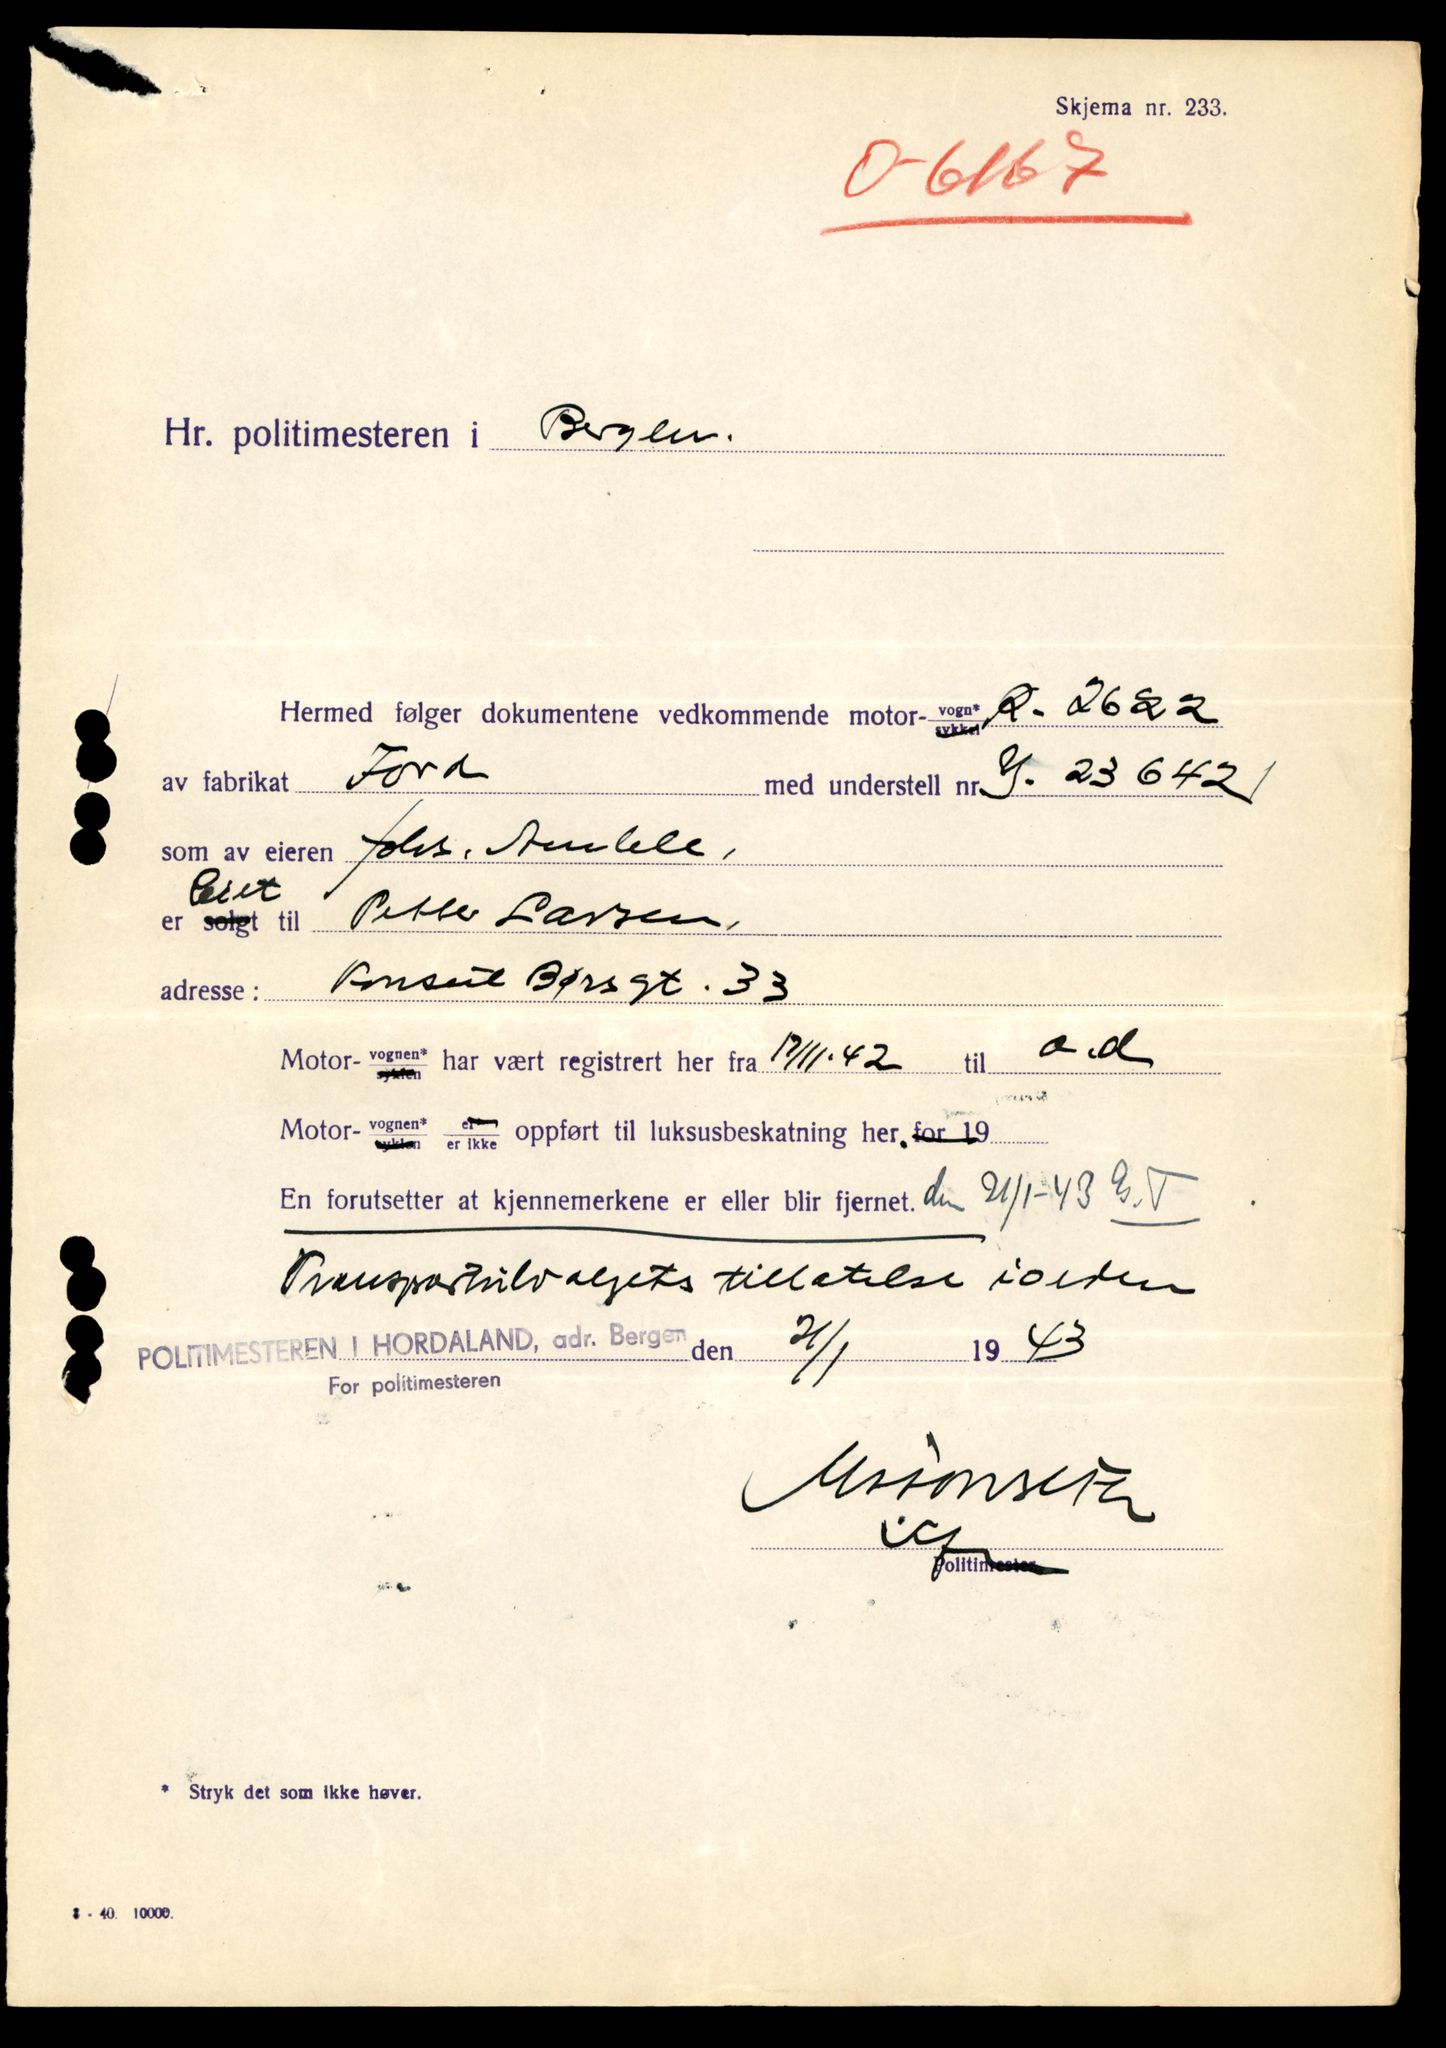 Skjema nr. 233.
O-6167
Hr. politimesteren i Bergen.
Hermed følger dokumentene vedkommende motor- vogn* sykkel R. 2622
av fabrikat Ford med understell nr. Y. 23642
som av eieren Johs.
leiet
er solgt til Petter Larsen,
adresse: Konsul Børsgt. 33
Motor- vognen* syklen har vært registrert her fra 17/11.42 til o.d
Motor- vognen* syklen er er ikke oppført til luksusbeskatning her. for 19
En forutsetter at kjennemerkene er eller blir fjernet. den 21/1-43 G.T
Transportutvalgets tillatelse i orden
POLITIMESTEREN I HORDALAND, adr. Bergen den 21/1 1943
For politimesteren
Politimester
* Stryk det som ikke høver.
40. 10000.